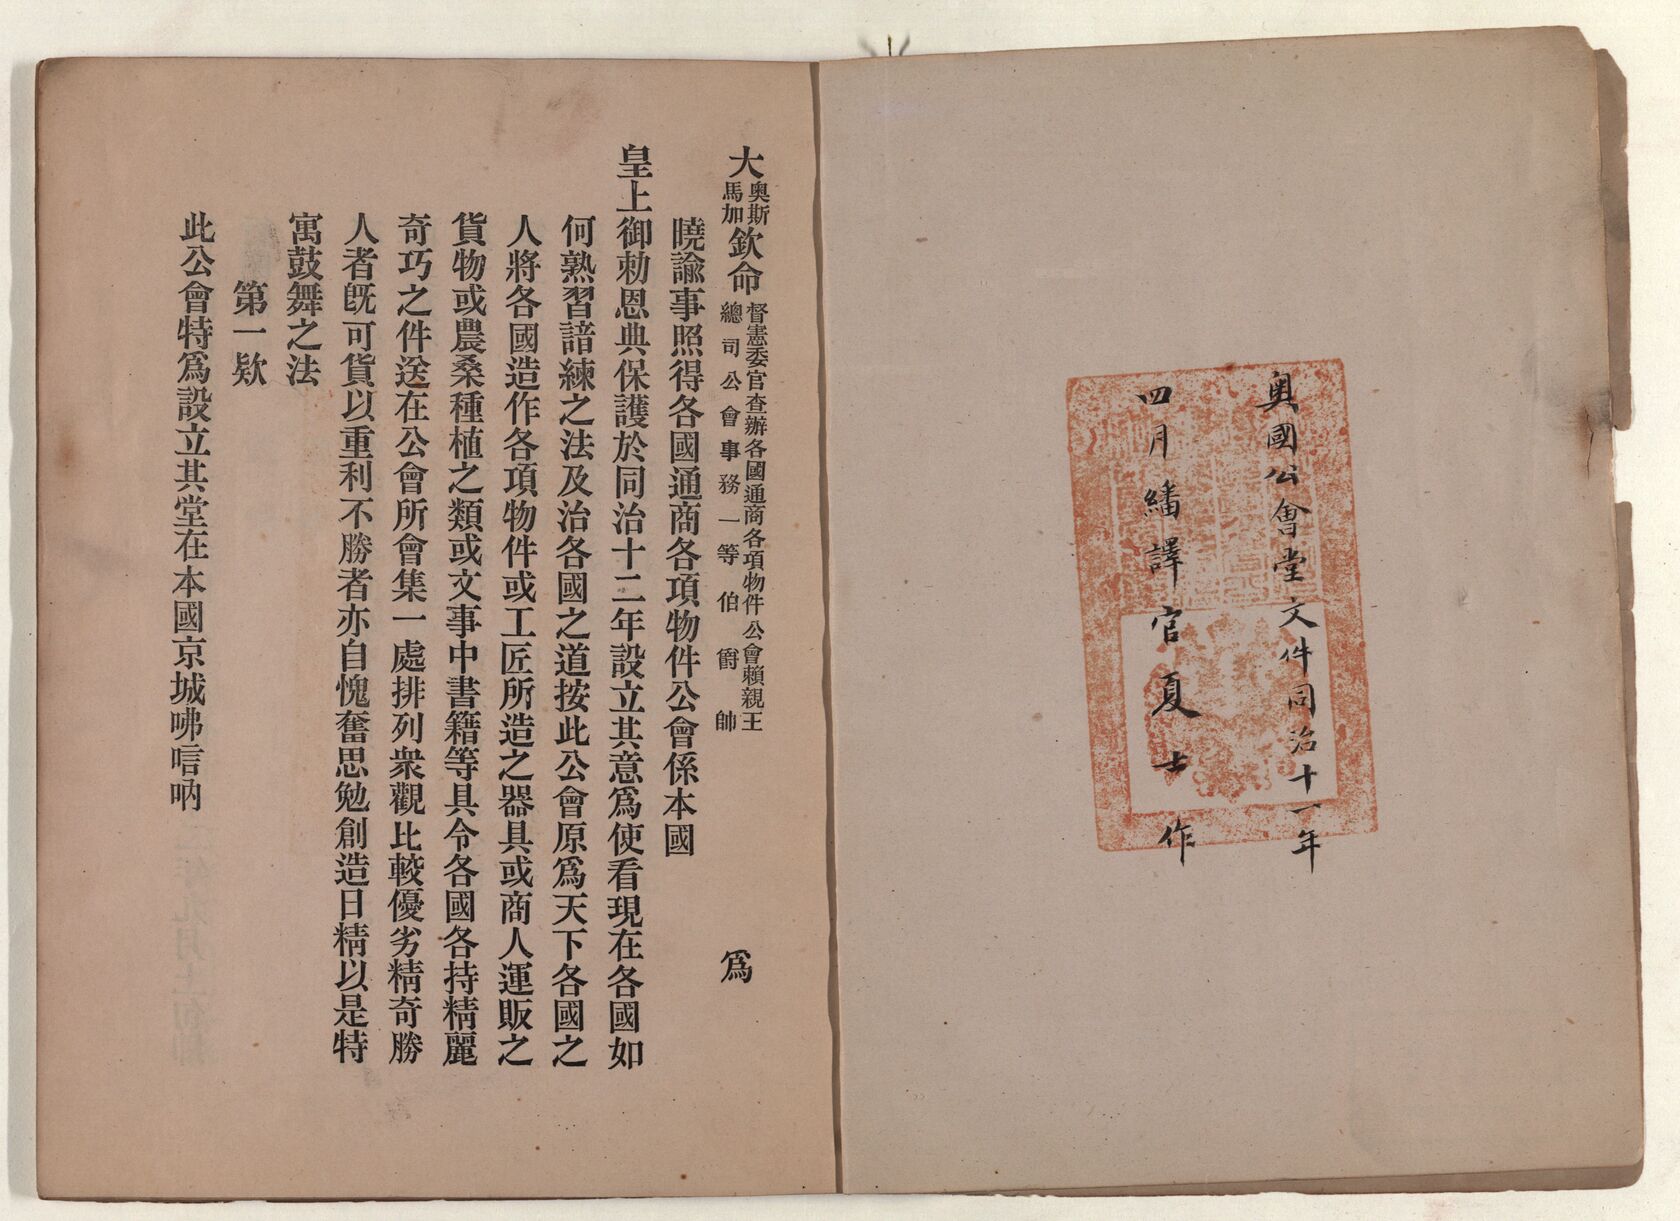 奧國公會堂文件同治十一年
四月繙譯官夏士作
大奧斯馬加欽命督憲委官查辦各國通商各項物件公會賴親王總司公會事務一等伯爵帥 爲
曉諭事照得各國通商各項物件公會係本國
皇上御勅恩典保護於同治十二年設立其意爲使看現在各國如
何熟習諳練之法及治各國之道按此公會原爲天下各國之
人將各國造作各項物件或工匠所造之器具或商人運販之
貨物或農桑種植之類或文事中書籍等具令各國各持精麗
奇巧之件送在公會所會集一處排列衆觀比較優劣精奇勝
人者既可貨以重利不勝者亦自愧奮思勉創造日精以是特
寓鼓舞之法
第一欵
此公會特爲設立其堂在本國京城咈唁吶